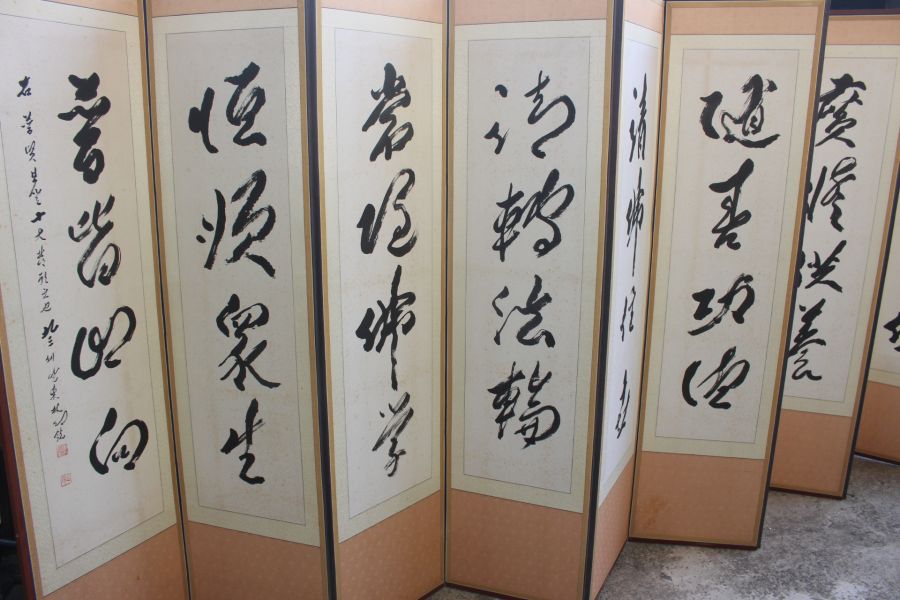 廣修供養
隨喜功德
請佛住世
請轉法輪
常隨佛學
恒順眾生
普皆回向
右普賢菩薩十大